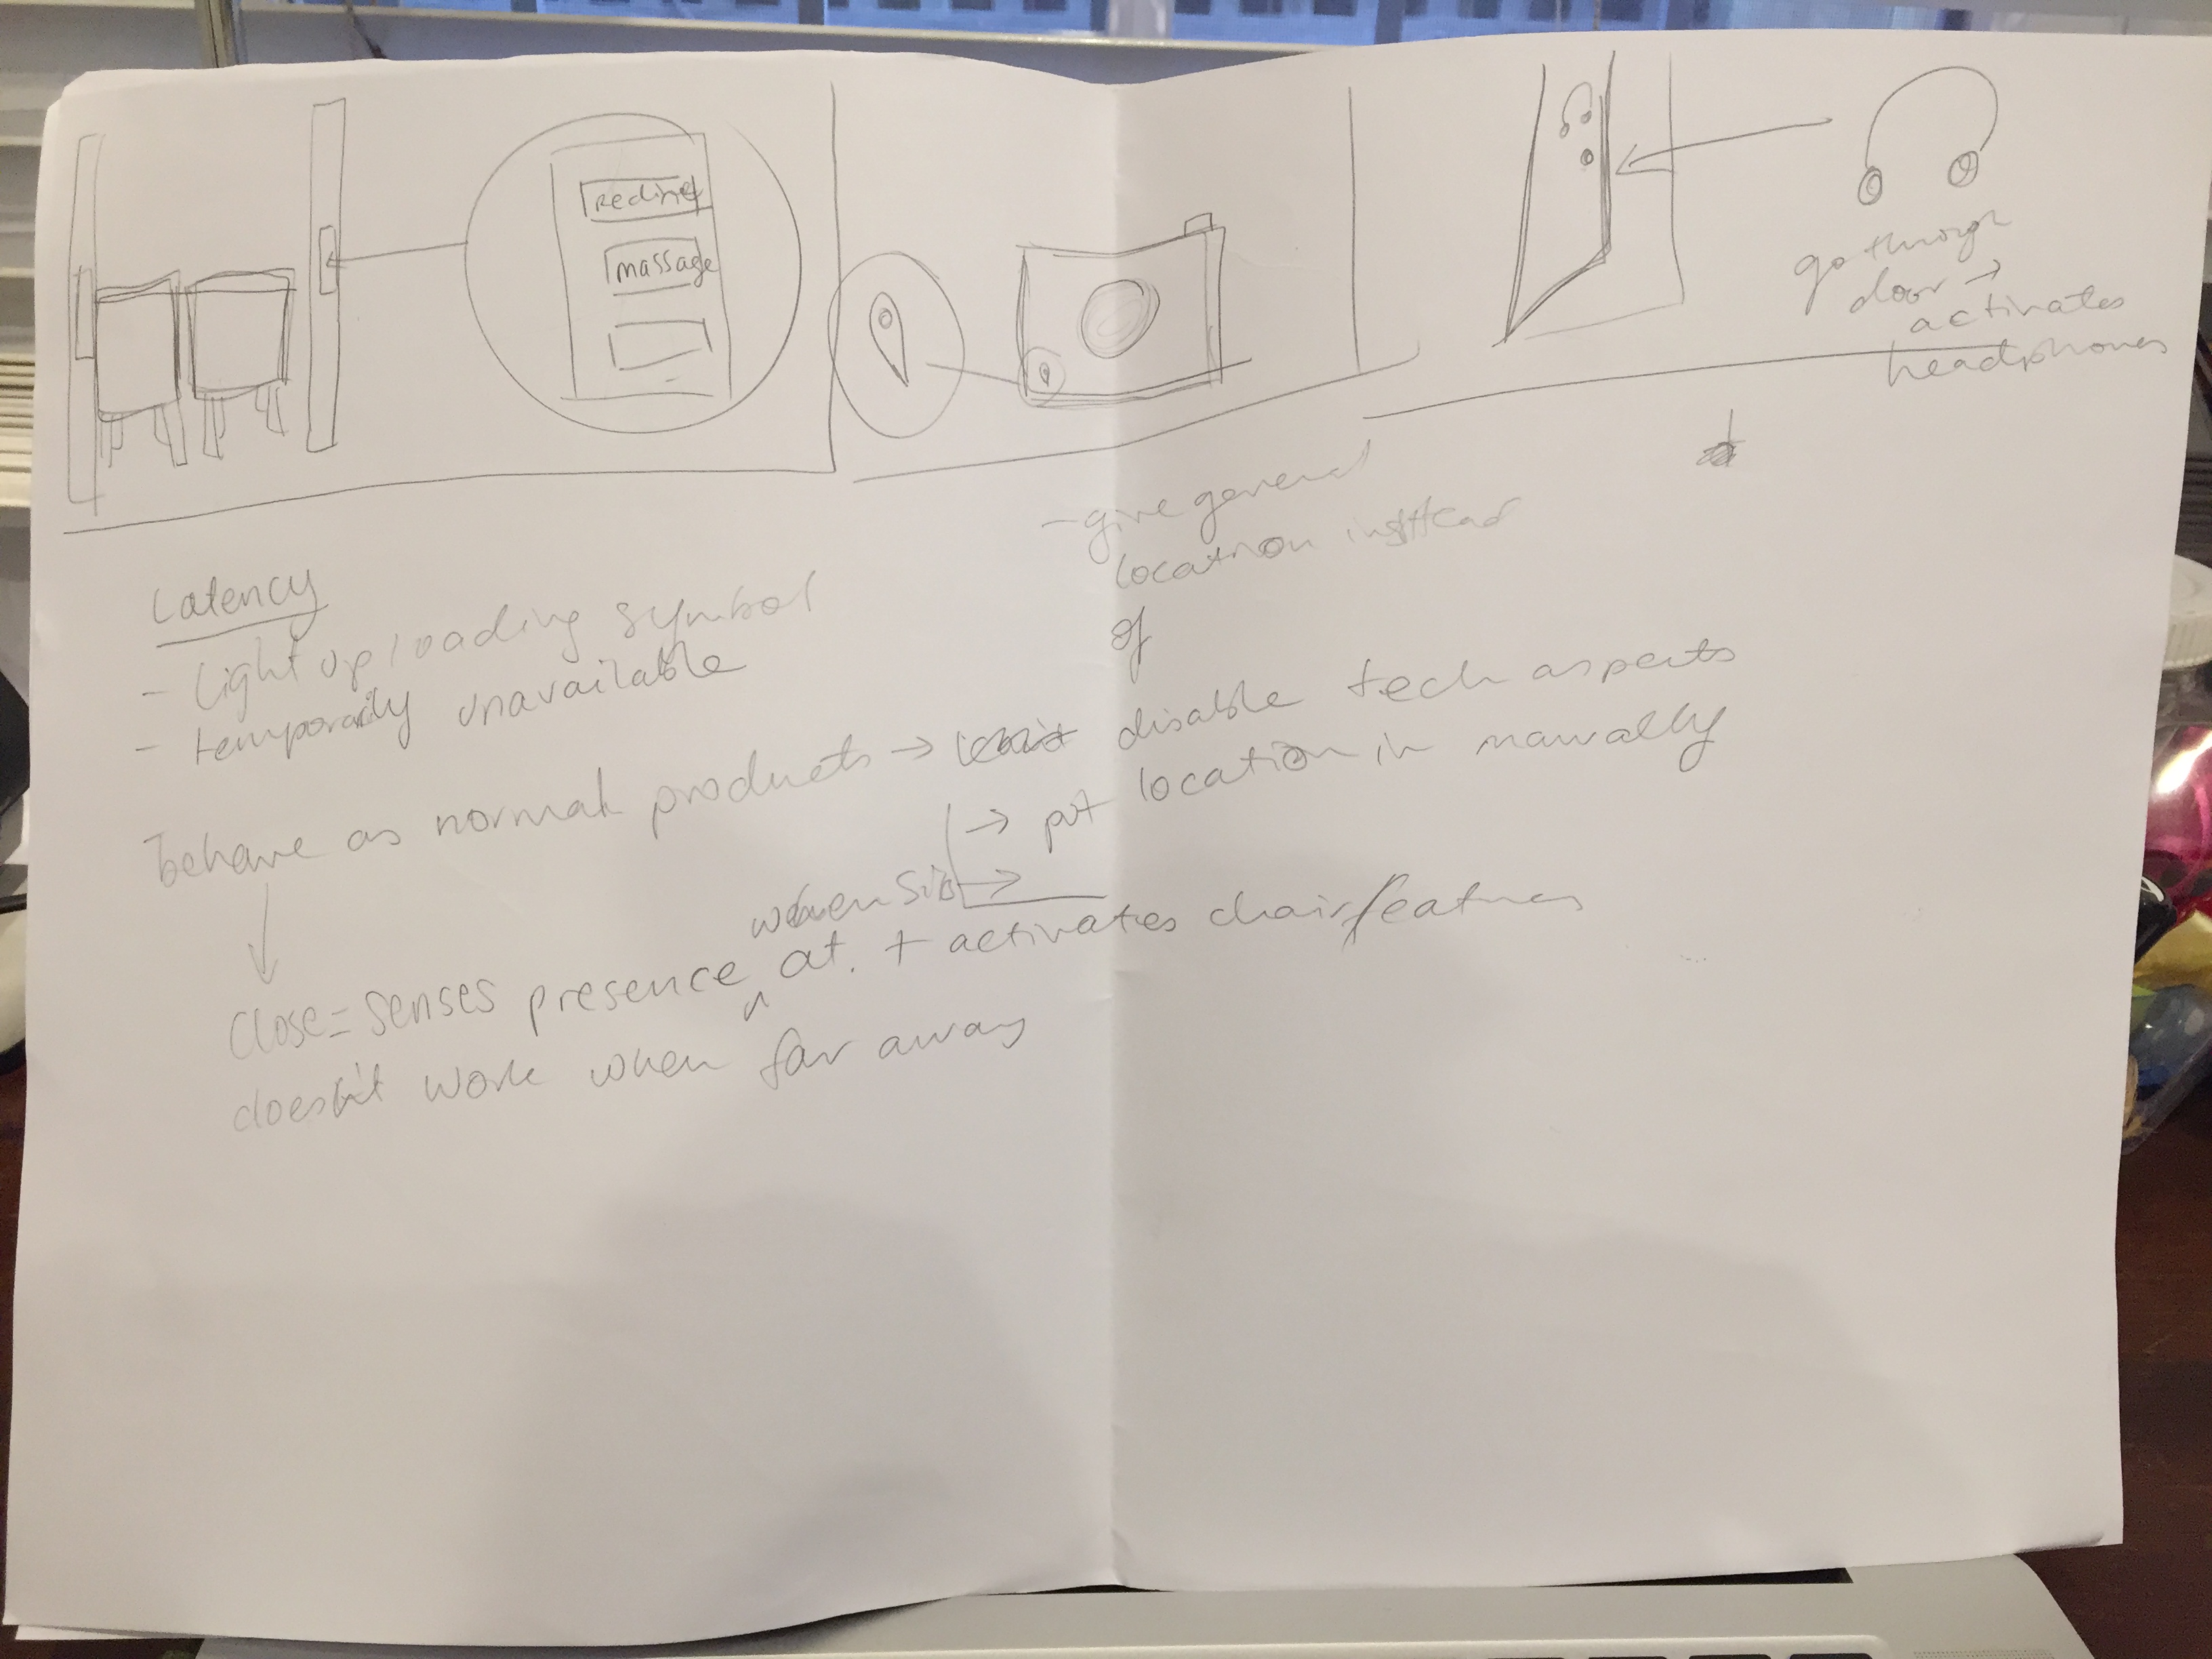 recline
massage
go through
door →
activates
headphones
- give general
location instead
of
Latency
- light up loading symbol
- temporarily unavailable
behave as normal products → disable tech aspects
→ put location in manually
when sit
→
Close = senses presence ^ at. + activates chair features
doesn't work when far away